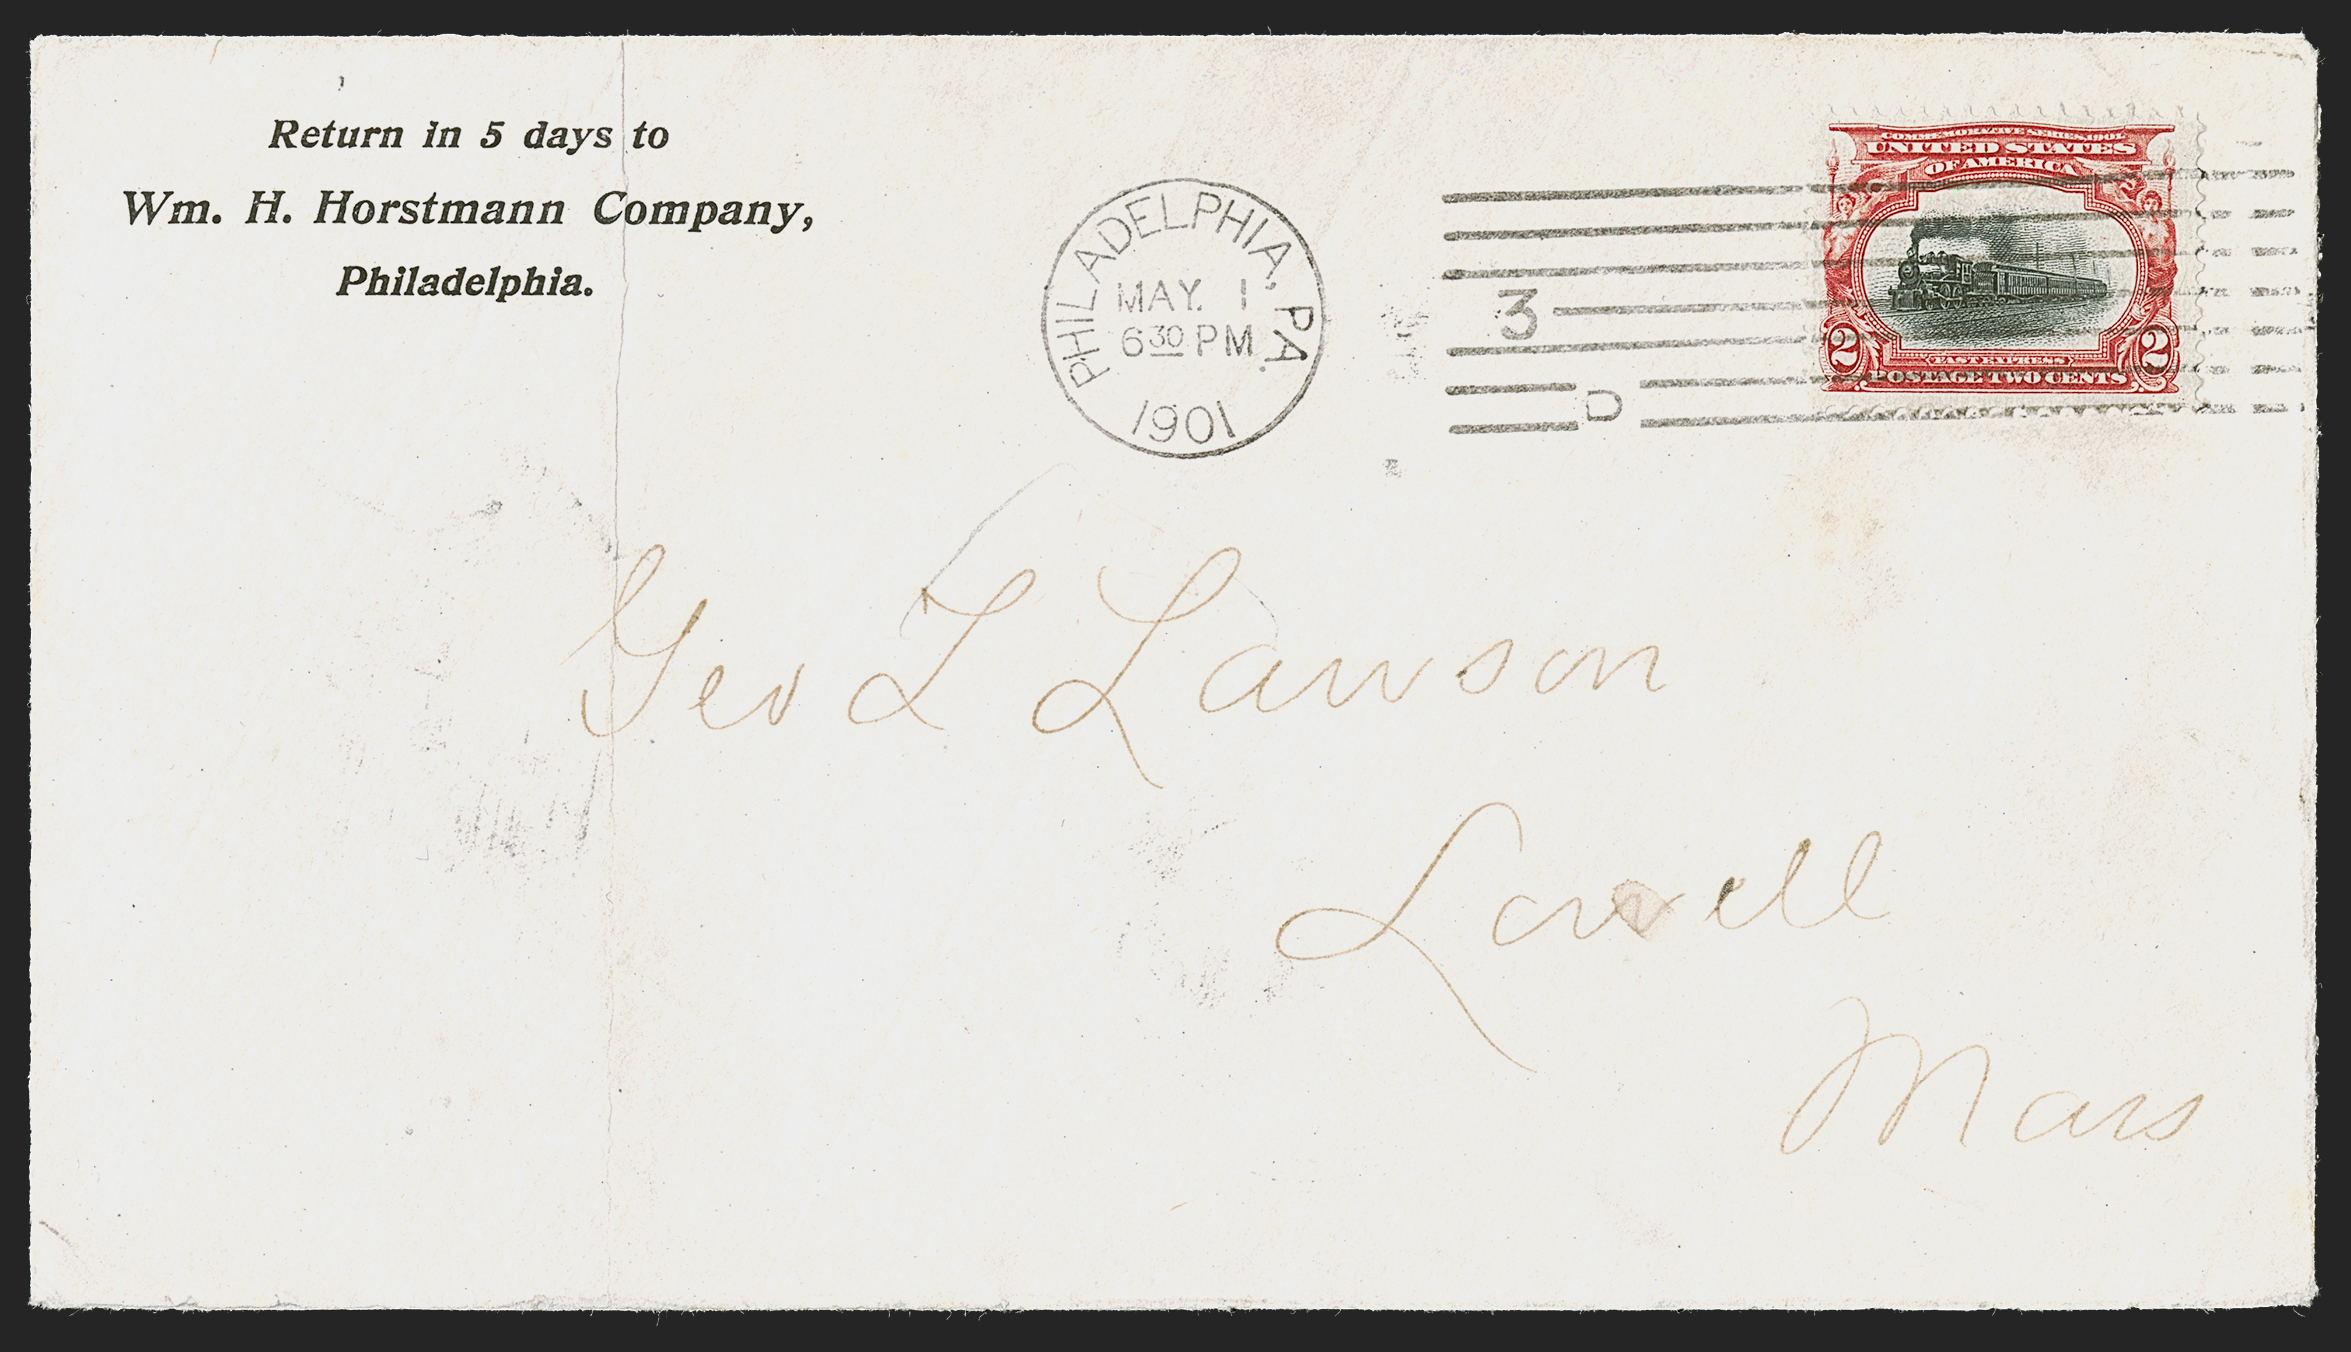 Return in 5 days to
Wm. H. Horstmann Company,
Philadelphia.
PHILADELPHIA, PA.
MAY. 1
6 30 PM
1901
3
D
COMMEMORATIVE SERIES 1901
UNITED STATES
OF AMERICA
FAST EXPRESS
2 2
POSTAGE TWO CENTS
Geo L Lawson
Lowell
Mass